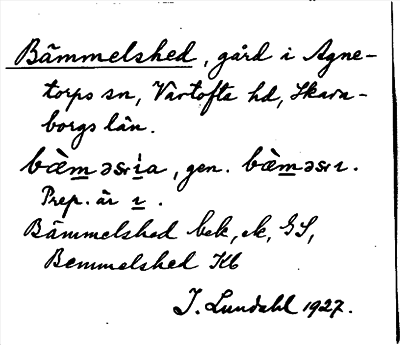 Bämmelshed, gård i Agne-
torps sn, Vartofta hd, Skara-
borgs län.
bæ̀m̲əsɩi̲a, gen. bæ̀m̲əsɩɩ.
Prep. är ɩ̲.
Bämmelshed bek, ek, GS,
Bemmelshed Kb
I. Lundahl 1927.